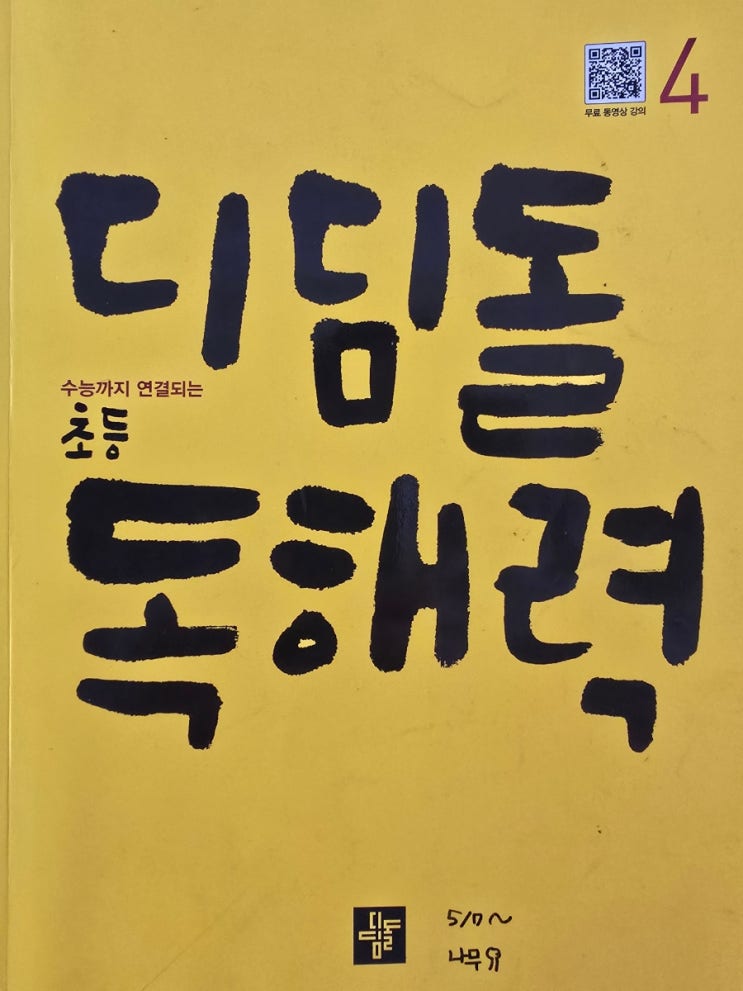 4
무료 동영상 강의
디딤돌
수능까지 연결되는
초등
독해력
디딤돌
5/17~